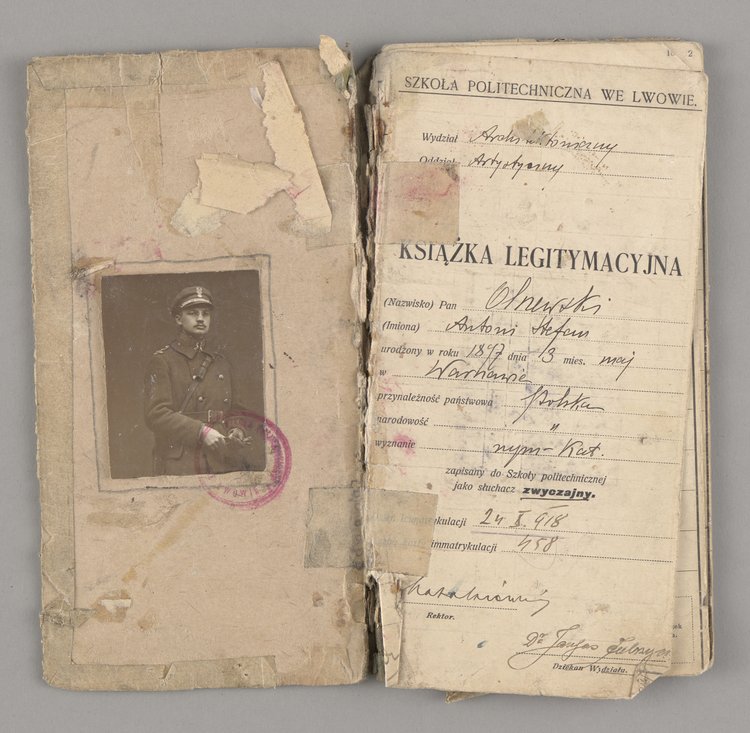 18 2
SZKOŁA POLITECHNICZNA WE LWOWIE.
Wydział
Oddział Artystyczny
KSIĄŻKA LEGITYMACYJNA
(Nazwisko) Pan Olszewski
(Imiona) Antoni Stefan
urodzony w roku 1897 dnia 13 mies. maj
w Warszawie
przynależność państwowa Polska
narodowość "
wyznanie rzym-Kat.
zapisany do Szkoły politechnicznej
jako słuchacz zwyczajny.
immatrykulacji 24 X. 918
immatrykulacji 458
Rektor.
Dr
Dziekan Wydziału.